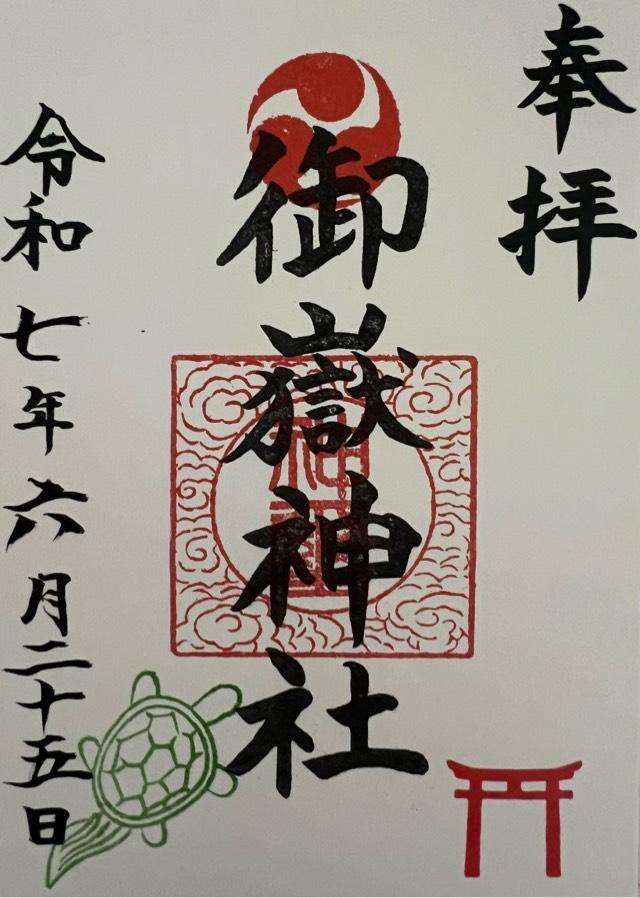 奉拝
御嶽神社
令和七年六月二十五日